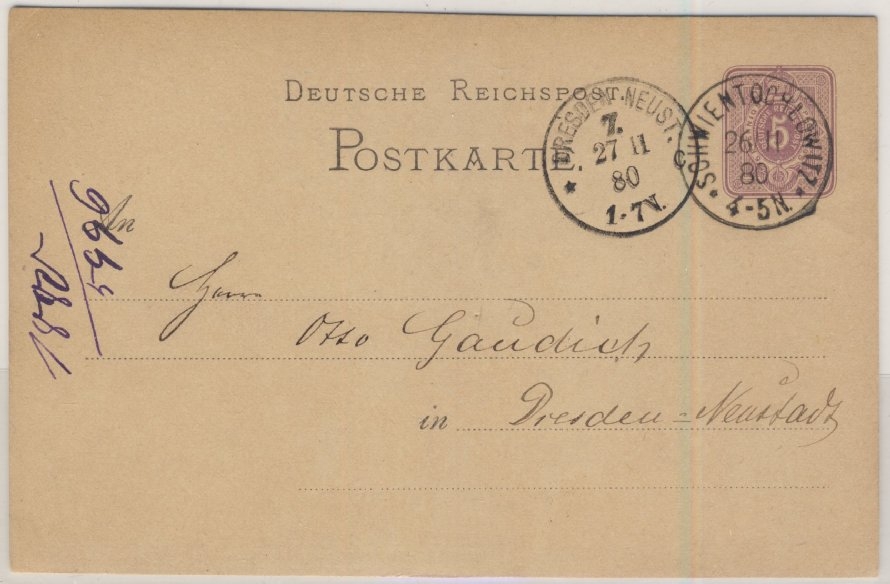 DEUTSCHE REICHSPOST.
POSTKARTE.
DRESDEN-NEUST.
7.
27 11
80
1-7V.
SCHWIENTOCHLOWITZ
26 11
80
4-5N.
5
An
Herrn
Otto Gaudich
in Dresden-Neustadt